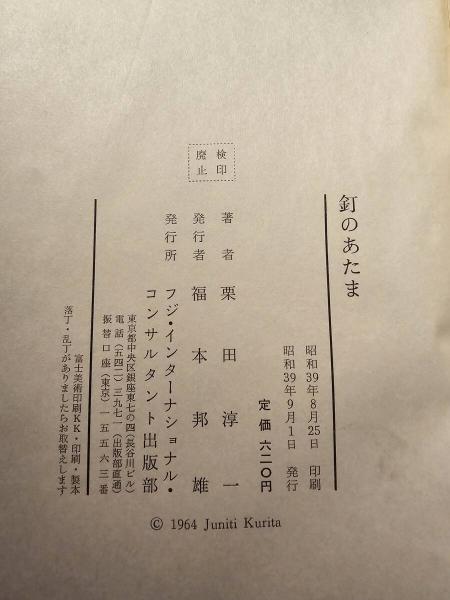 釘のあたま
昭和39年8月25日 印刷
昭和39年9月1日 発行
定価 六二〇円
検印
廃止
著者 栗田淳一
発行者 福本邦雄
発行所 フジ・インターナショナル・
コンサルタント出版部
東京都中央区銀座東七の四(長谷川ビル)
電話(五四二)三九七一(出版部直通)
振替口座(東京)一五五六三番
富士美術印刷KK・印刷・製本
落丁・乱丁がありましたらお取替えします
© 1964 Juniti Kurita